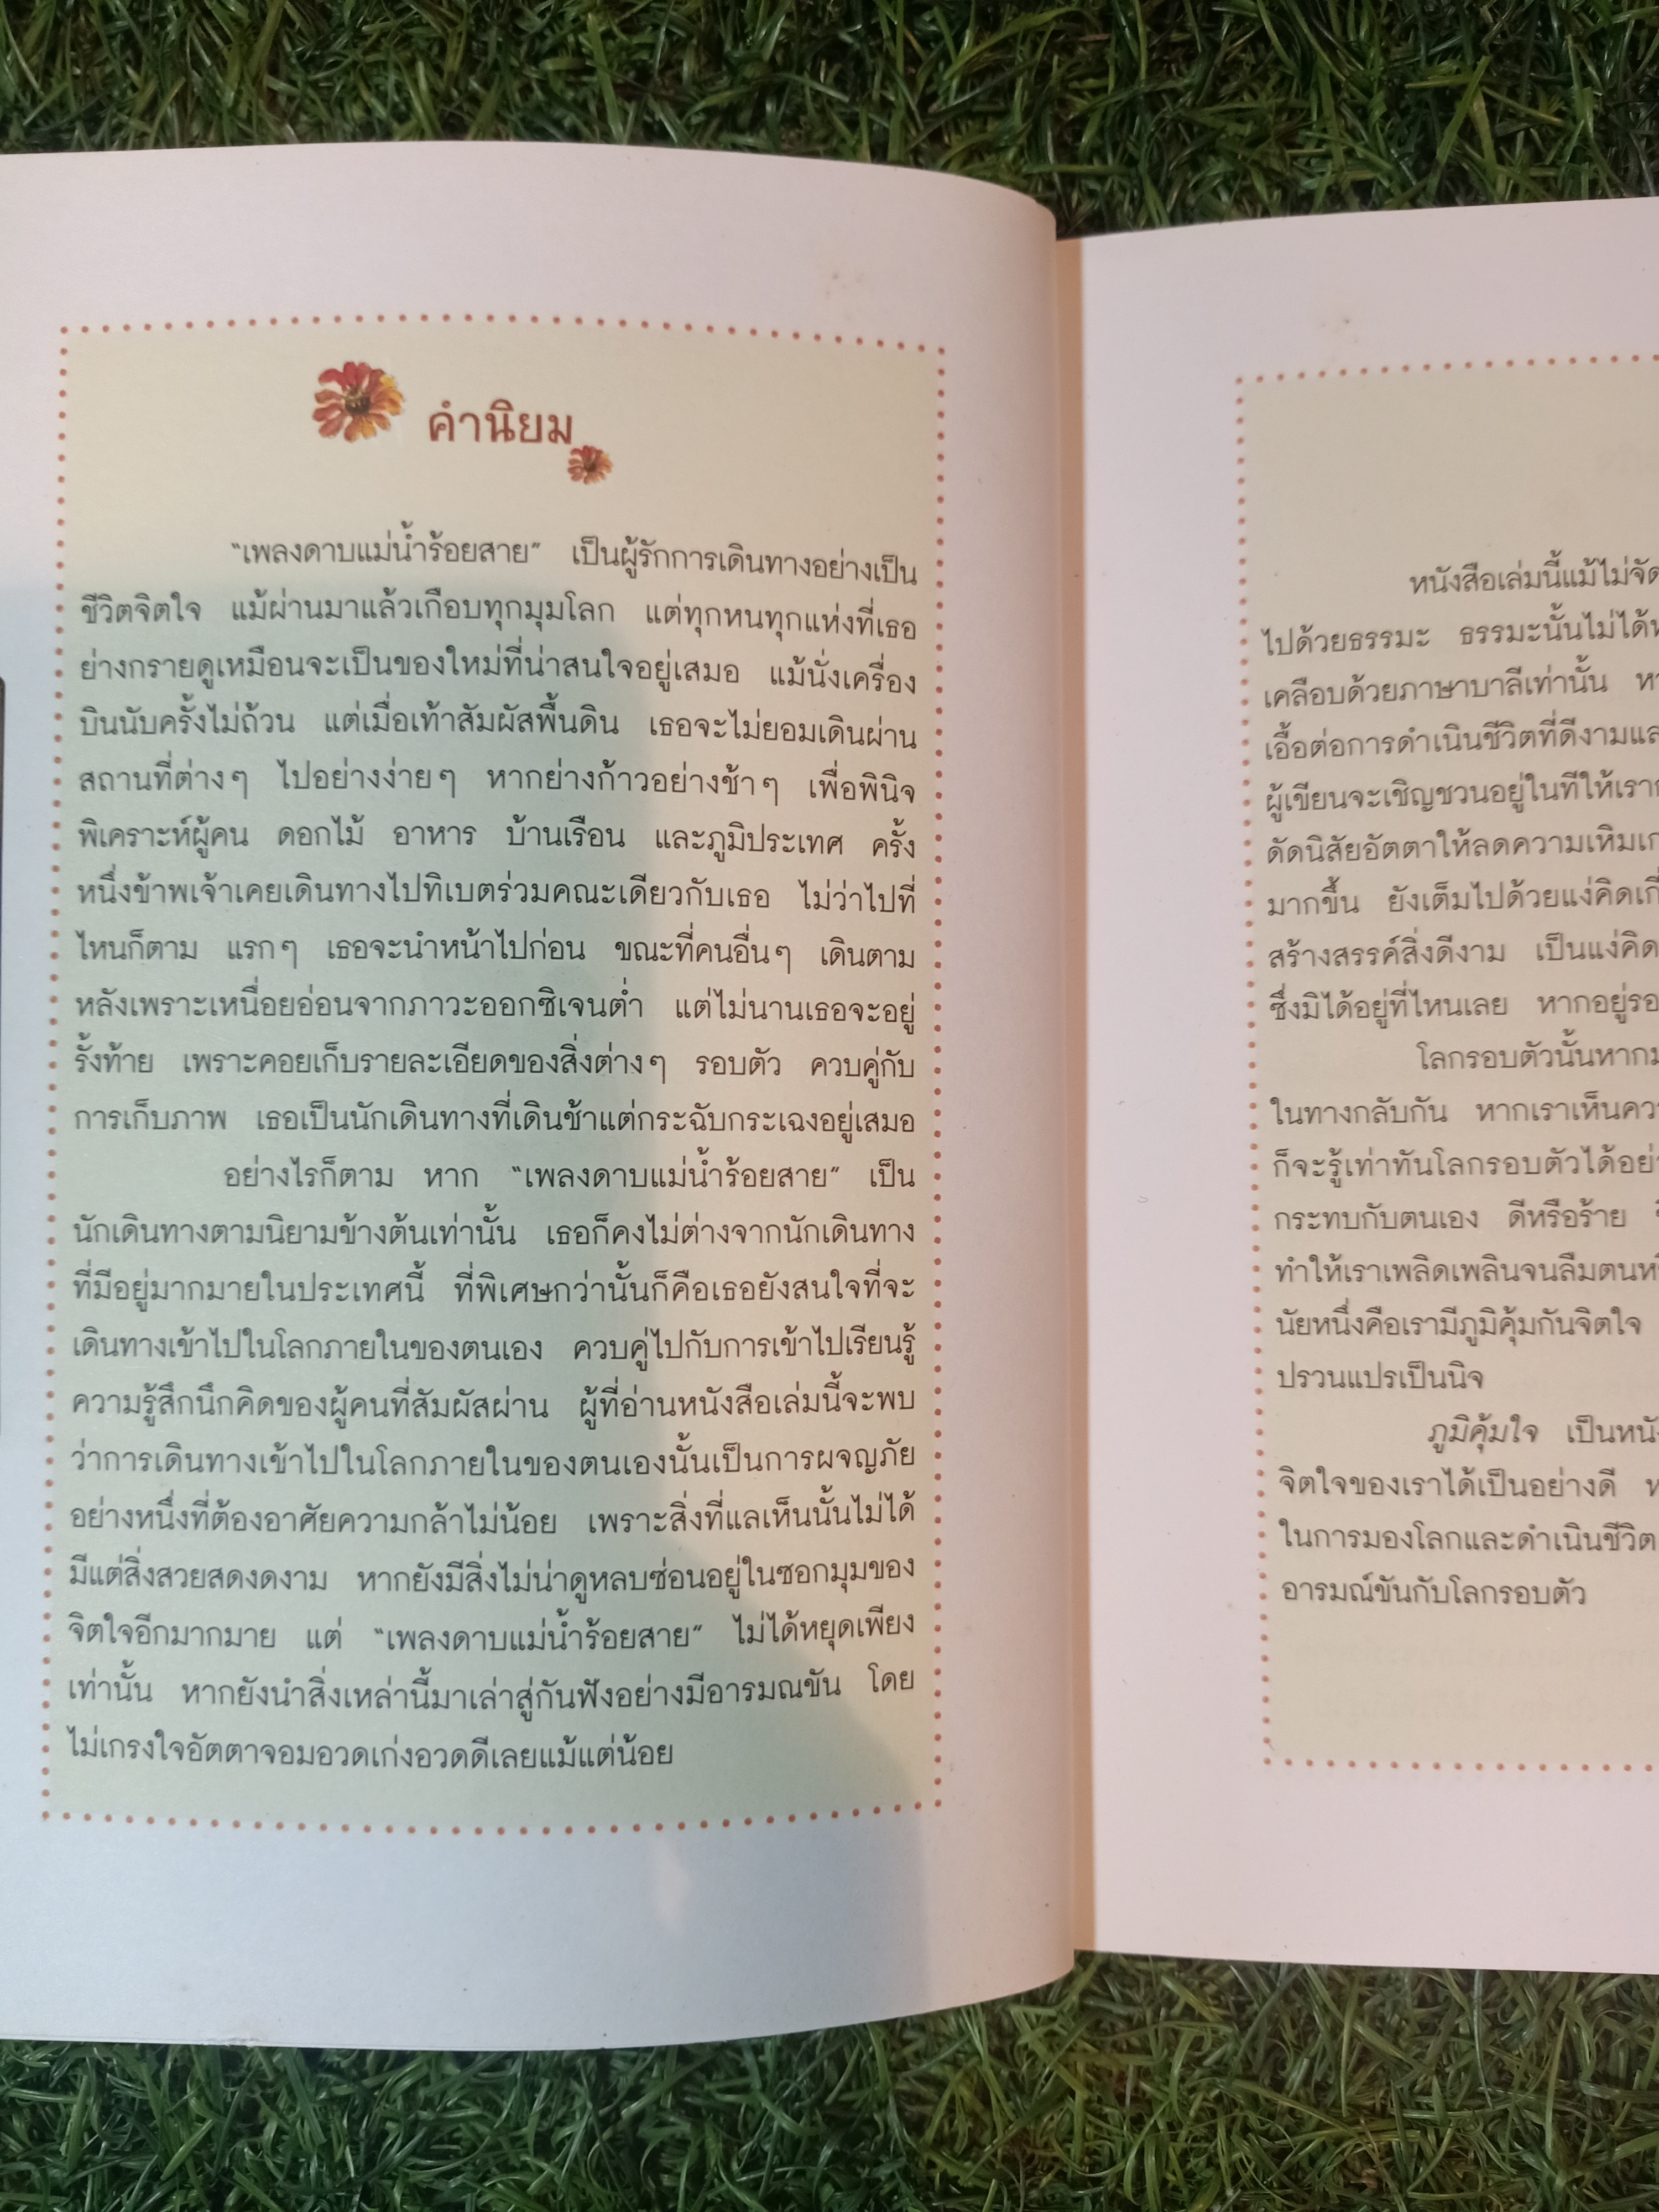 คำนิยม
“เพลงดาบแม่น้ำร้อยสาย” เป็นผู้รักการเดินทางอย่างเป็น
ชีวิตจิตใจ แม้ผ่านมาแล้วเกือบทุกมุมโลก แต่ทุกหนทุกแห่งที่เธอ
ย่างกรายดูเหมือนจะเป็นของใหม่ที่น่าสนใจอยู่เสมอ แม้นั่งเครื่อง
บินนับครั้งไม่ถ้วน แต่เมื่อเท้าสัมผัสพื้นดิน เธอจะไม่ยอมเดินผ่าน
สถานที่ต่างๆ ไปอย่างง่ายๆ หากย่างก้าวอย่างช้าๆ เพื่อพินิจ
พิเคราะห์ผู้คน ดอกไม้ อาหาร บ้านเรือน และภูมิประเทศ ครั้ง
หนึ่งข้าพเจ้าเคยเดินทางไปทิเบตร่วมคณะเดียวกับเธอ ไม่ว่าไปที่
ไหนก็ตาม แรกๆ เธอจะนำหน้าไปก่อน ขณะที่คนอื่นๆ เดินตาม
หลังเพราะเหนื่อยอ่อนจากภาวะออกซิเจนต่ำ แต่ไม่นานเธอจะอยู่
รั้งท้าย เพราะคอยเก็บรายละเอียดของสิ่งต่างๆ รอบตัว ควบคู่กับ
การเก็บภาพ เธอเป็นนักเดินทางที่เดินช้าแต่กระฉับกระเฉงอยู่เสมอ
อย่างไรก็ตาม หาก “เพลงดาบแม่น้ำร้อยสาย” เป็น
นักเดินทางตามนิยามข้างต้นเท่านั้น เธอก็คงไม่ต่างจากนักเดินทาง
ที่มีอยู่มากมายในประเทศนี้ ที่พิเศษกว่านั้นก็คือเธอยังสนใจที่จะ
เดินทางเข้าไปในโลกภายในของตนเอง ควบคู่ไปกับการเข้าไปเรียนรู้
ความรู้สึกนึกคิดของผู้คนที่สัมผัสผ่าน ผู้ที่อ่านหนังสือเล่มนี้จะพบ
ว่าการเดินทางเข้าไปในโลกภายในของตนเองนั้นเป็นการผจญภัย
อย่างหนึ่งที่ต้องอาศัยความกล้าไม่น้อย เพราะสิ่งที่แลเห็นนั้นไม่ได้
มีแต่สิ่งสวยสดงดงาม หากยังมีสิ่งไม่น่าดูหลบซ่อนอยู่ในซอกมุมของ
จิตใจอีกมากมาย แต่ “เพลงดาบแม่น้ำร้อยสาย” ไม่ได้หยุดเพียง
เท่านั้น หากยังนำสิ่งเหล่านี้มาเล่าสู่กันฟังอย่างมีอารมณขัน โดย
ไม่เกรงใจอัตตาจอมอวดเก่งอวดดีเลยแม้แต่น้อย
หนังสือเล่มนี้แม้ไม่จัด
ไปด้วยธรรมะ ธรรมะนั้นไม่ได้
เคลือบด้วยภาษาบาลีเท่านั้น
เอื้อต่อการดำเนินชีวิตที่ดีงาม
ผู้เขียนจะเชิญชวนอยู่ในทีให้เรา
ดัดนิสัยอัตตาให้ลดความเหิม
มากขึ้น ยังเต็มไปด้วยแง่คิด
สร้างสรรค์สิ่งดีงาม เป็นแง่คิด
ซึ่งมิได้อยู่ที่ไหนเลย หากอยู่
โลกรอบตัวนั้นหาก
ในทางกลับกัน หากเราเห็น
ก็จะรู้เท่าทันโลกรอบตัวได้
กระทบกับตนเอง ดีหรือร้าย
ทำให้เราเพลิดเพลินจนลืมตน
นัยหนึ่งคือเรามีภูมิคุ้มกันจิตใจ
ปรวนแปรเป็นนิจ
ภูมิคุ้มใจ เป็น
จิตใจของเราได้เป็นอย่างดี
ในการมองโลกและดำเนินชีวิต
อารมณ์ขันกับโลกรอบตัว